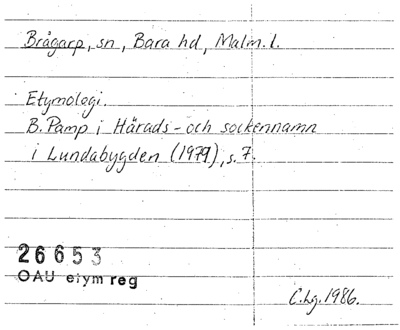 Brågarp, sn, Bara hd, Malm. l.
Etymologi.
B. Pamp i Härads- och sockennamn
i Lundabygden (1979), s. 7.
26653
OAU etym reg
C. Lg. 1986.